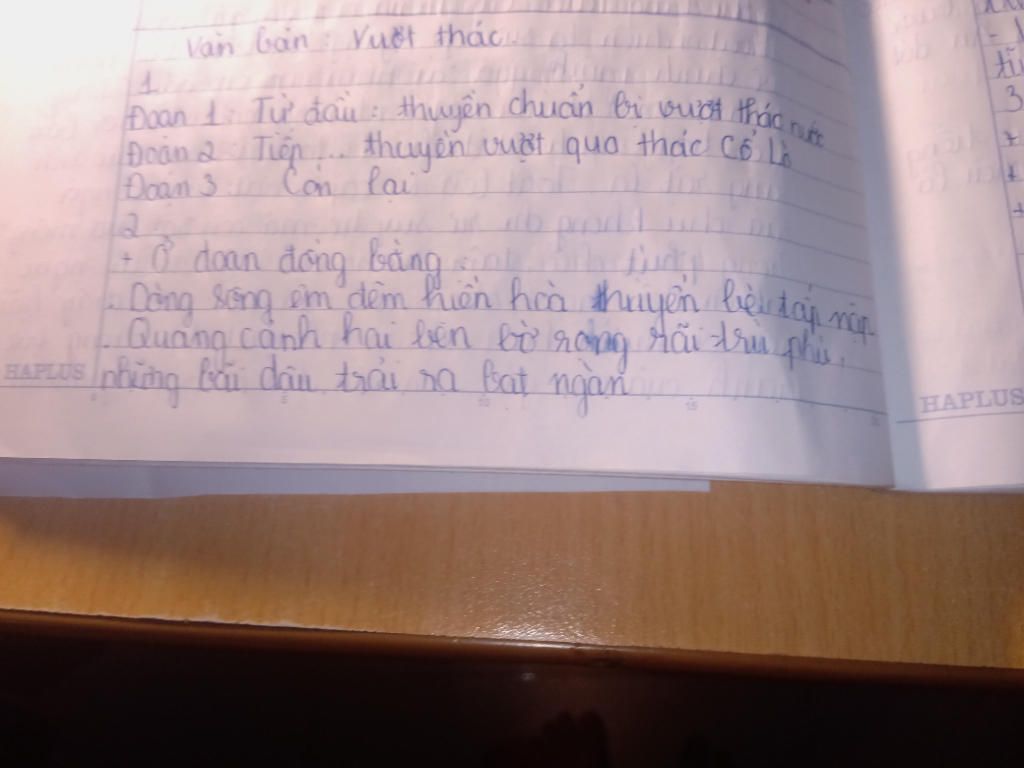 Văn bản: Vượt thác.
1
Đoạn 1: Từ đầu: thuyền chuẩn bị vượt thác nước
Đoạn 2: Tiếp... thuyền vượt qua thác Cổ Lò
Đoạn 3: Còn lại
2
+ Ở đoan đồng bằng
. Dòng sông êm đềm hiền hoà thuyền bè tấp nập
. Quang cảnh hai bên bờ rộng rãi trù phú,
HAPLUS những bãi dâu trải ra bạt ngàn
3
HAPLUS